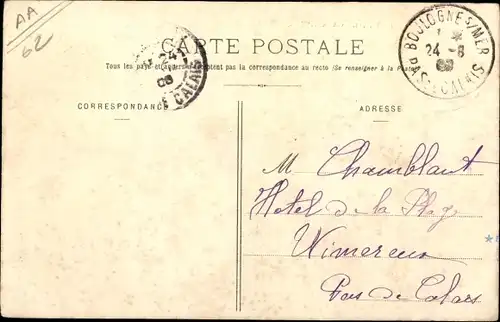 AA
62
CARTE POSTALE
Tous les pays étrangers n'acceptent pas la correspondance au recto (Se renseigner à la Poste)
24
08
CALAIS
BOULOGNE S/MER
24-8
08
PAS-DE-CALAIS
CORRESPONDANCE
ADRESSE
M Chamblant
Hotel de la Plage
Wimereux
Pas de Calais